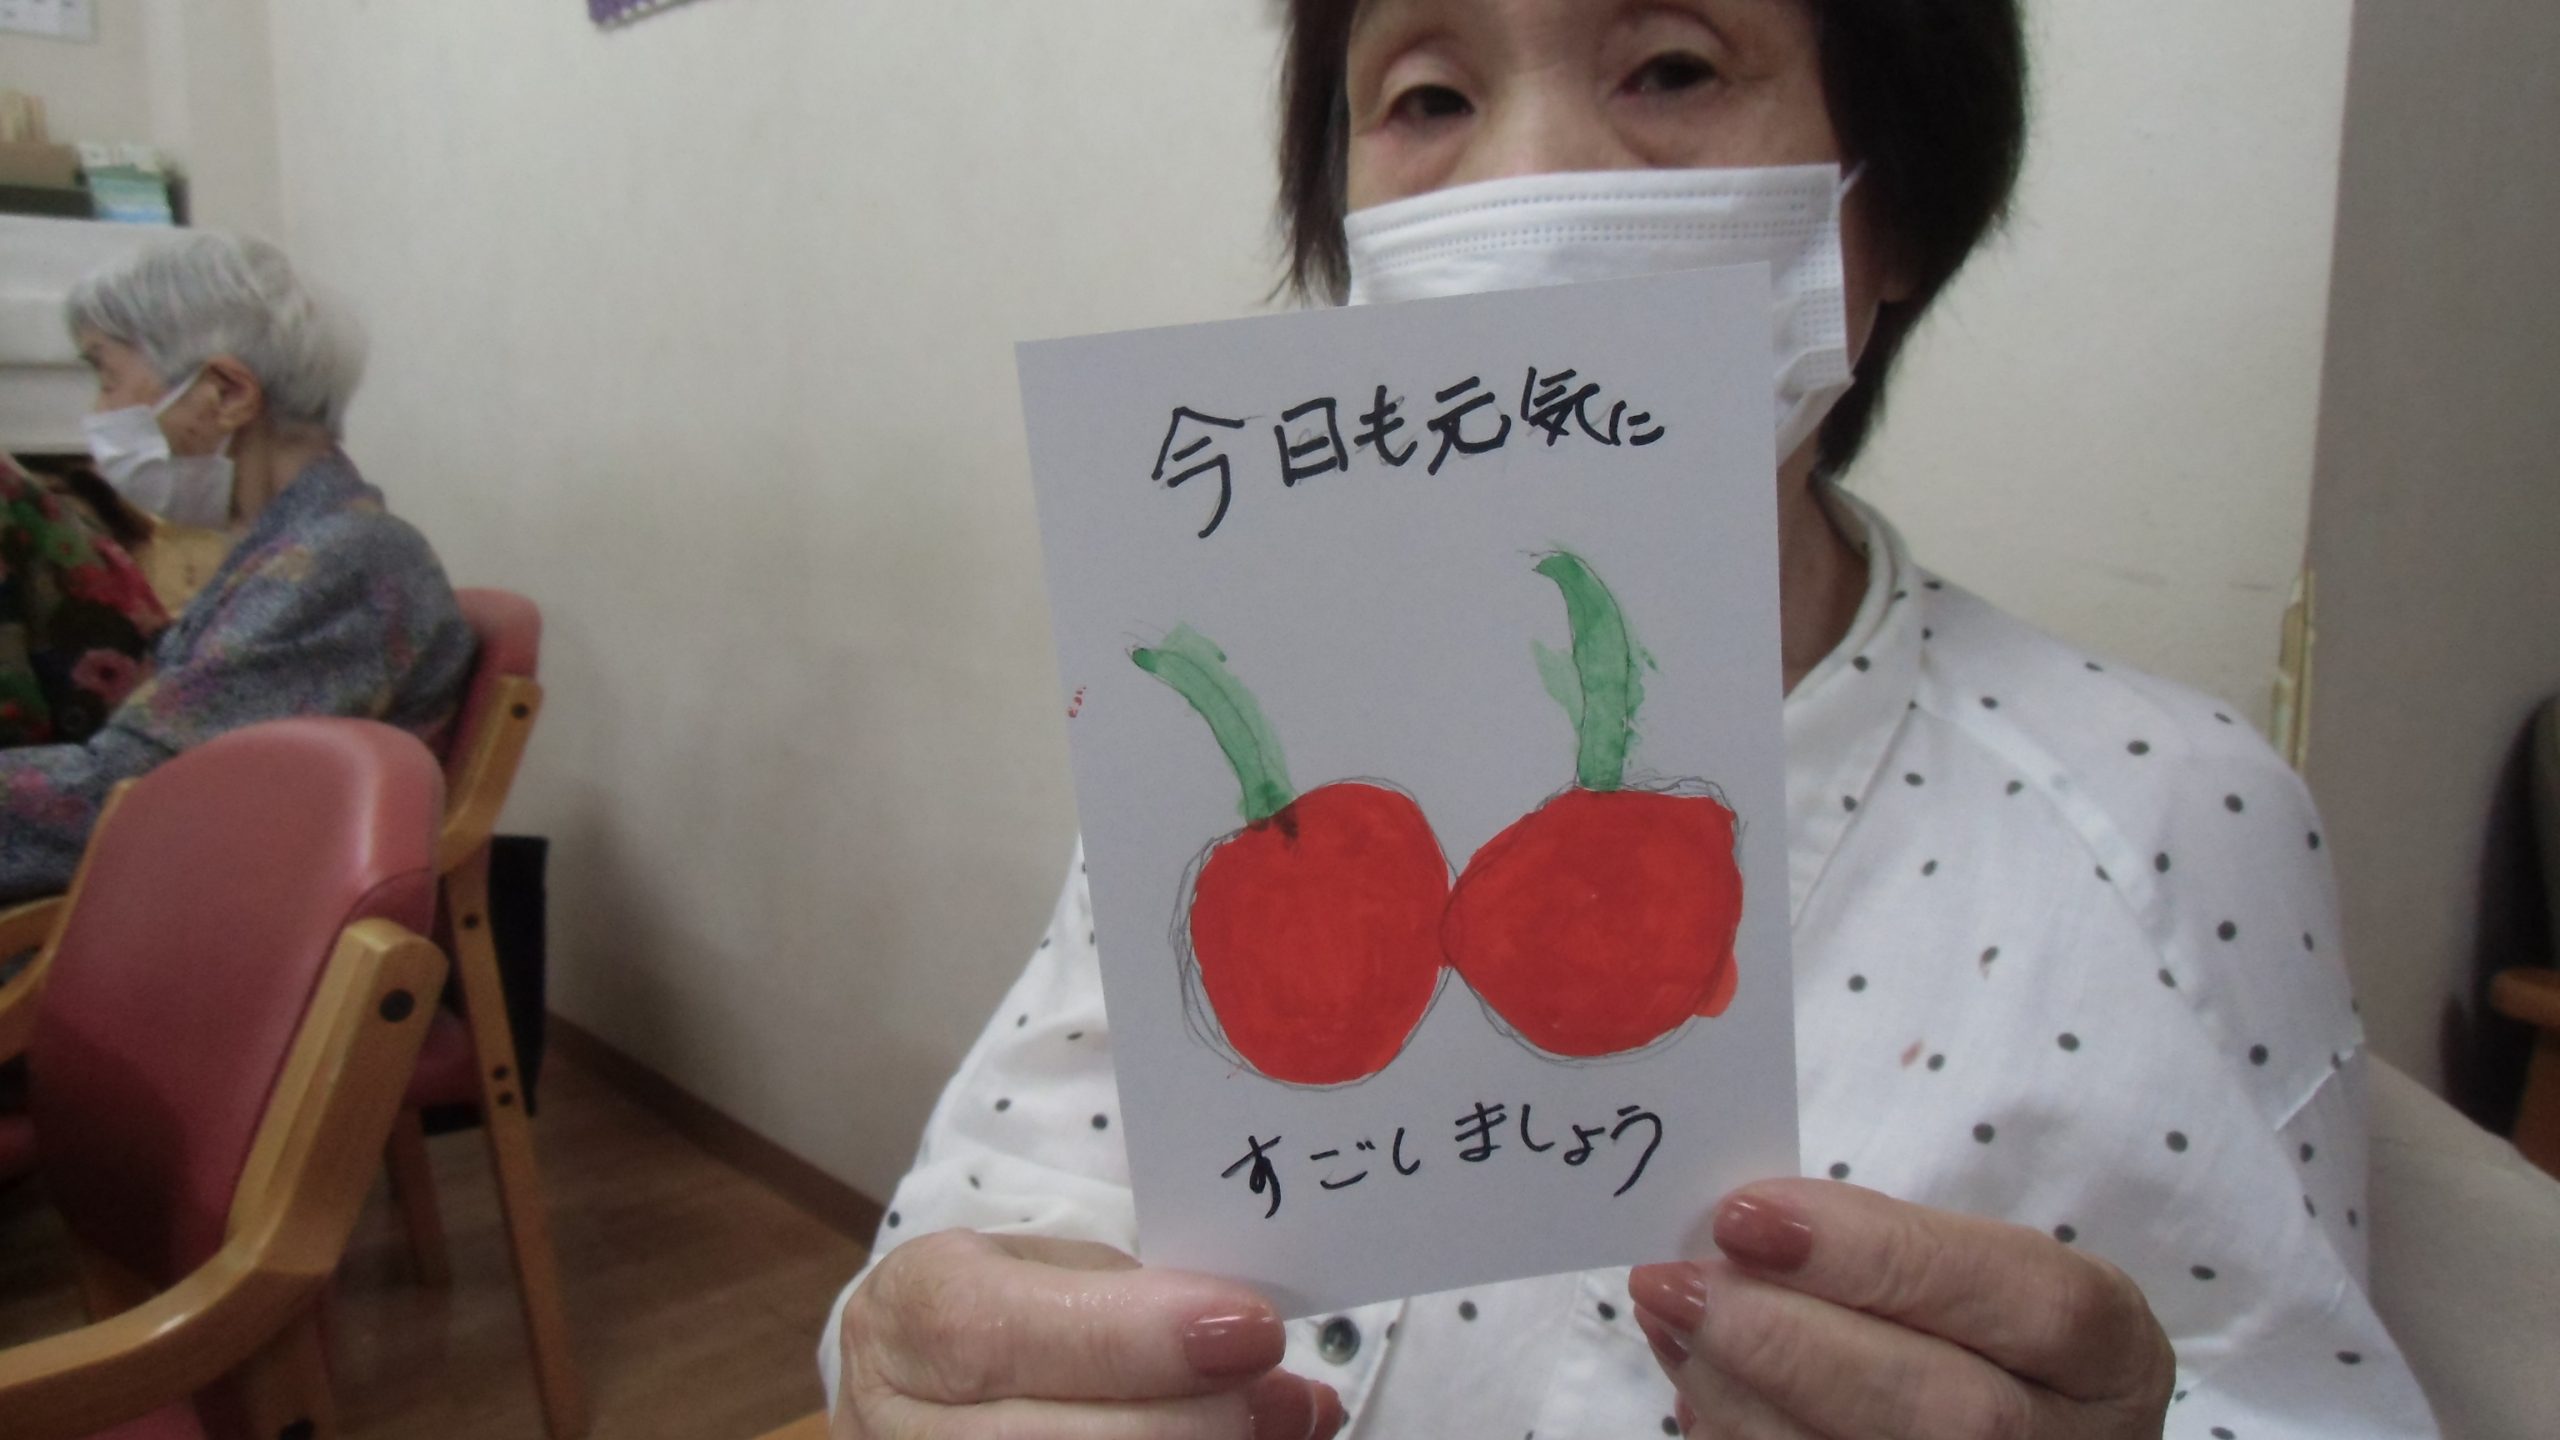 今日も元気に
すごしましょう